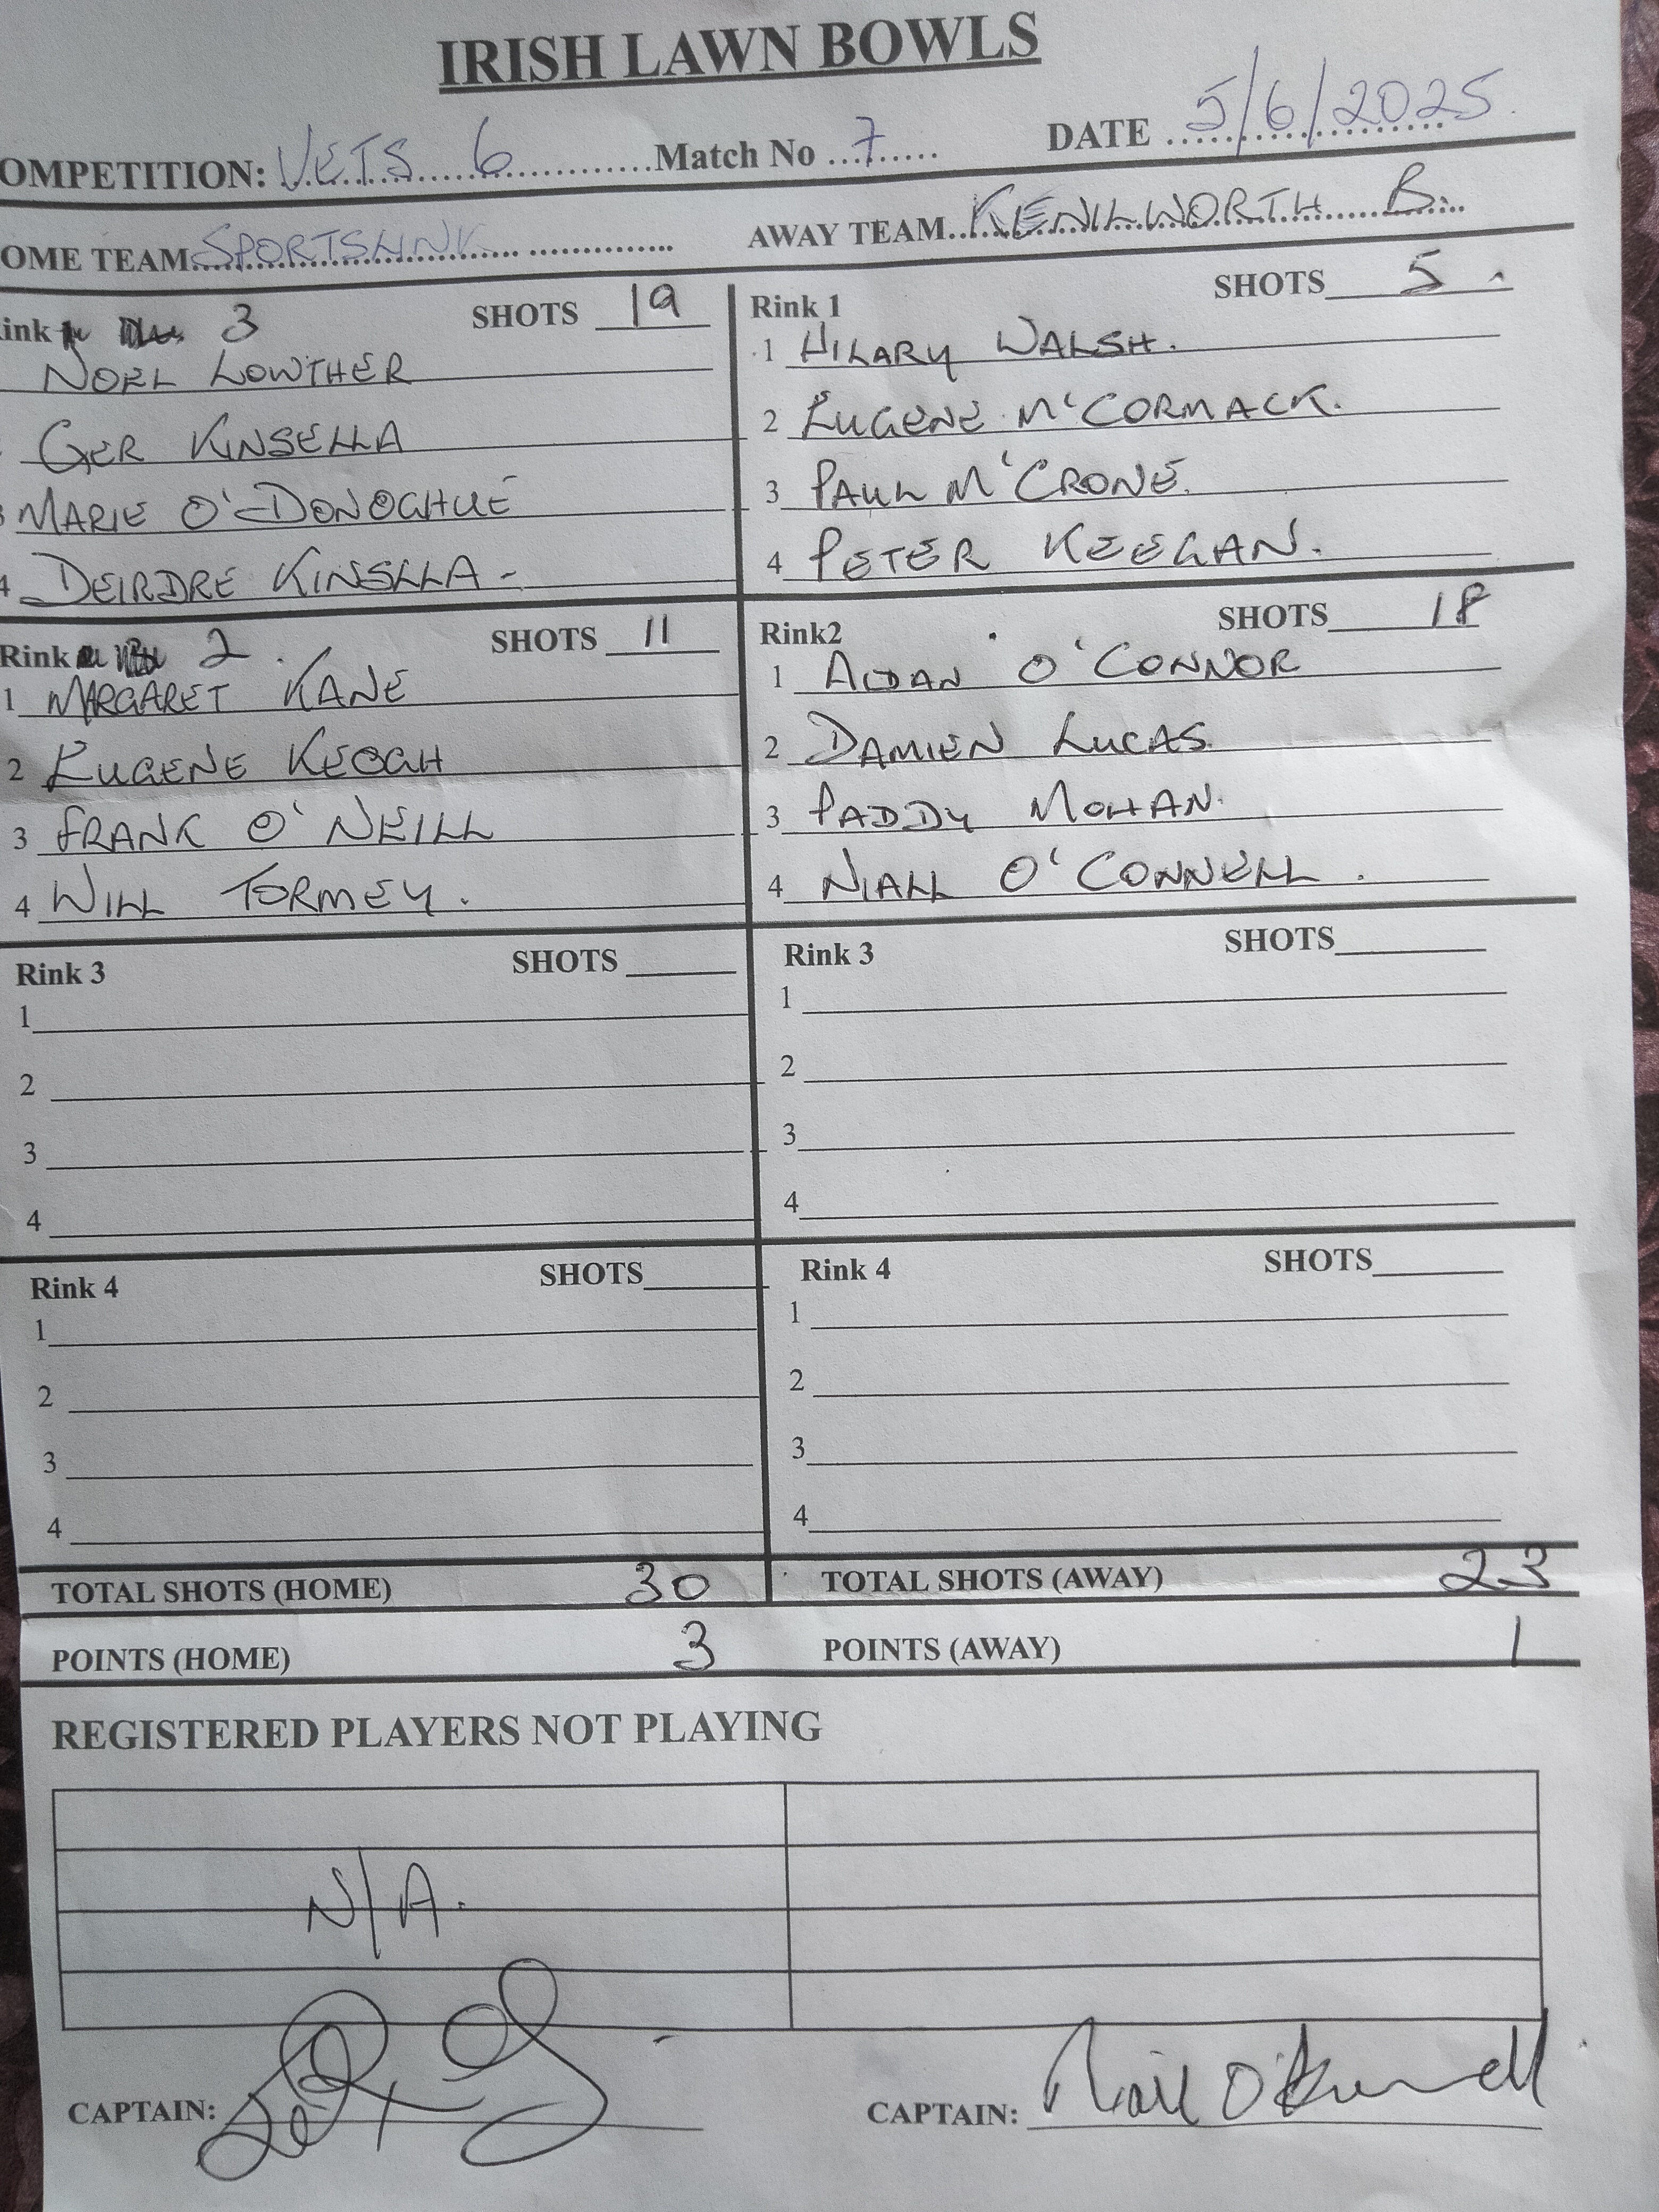 IRISH LAWN BOWLS
OMPETITION: VETS 6 Match No 7 DATE 5/6/2025
OME TEAM SPORTSLINK AWAY TEAM KENILWORTH B.
ink 3 SHOTS 19
NOEL LOWTHER
GER KINSELLA
3 MARIE O'DONOGHUE
4 DEIRDRE KINSLLA-
Rink 1 SHOTS 5
1 HILARY WALSH.
2 EUGENE M'CORMACK.
3 PAUL M'CRONE.
4 PETER KEEGAN.
Rink 2 SHOTS 11
1 MARGARET KANE
2 EUGENE KEOGH
3 FRANK O'NEILL
4 WILL TORMEY.
Rink2 SHOTS 18
1 AIDAN O'CONNOR
2 DAMIEN LUCAS
3 PADDY MOHAN.
4 NIALL O'CONNELL.
Rink 3 SHOTS
1
2
3
4
Rink 3 SHOTS
1
2
3
4
Rink 4 SHOTS
1
2
3
4
Rink 4 SHOTS
1
2
3
4
TOTAL SHOTS (HOME) 30 TOTAL SHOTS (AWAY) 23
POINTS (HOME) 3 POINTS (AWAY) 1
REGISTERED PLAYERS NOT PLAYING
N/A.
CAPTAIN: CAPTAIN: Niall O'Connell